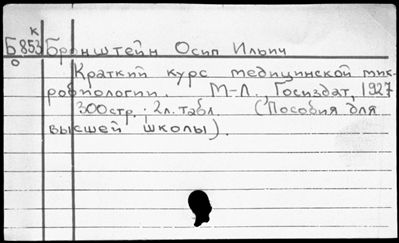 к
Б853 Бронштейн Осип Ильич
о
Краткий курс медицинской мик-
робиологии. М-Л., Госиздат, 1927
300 стр.; 2 л. табл. (Пособия для
высшей школы).